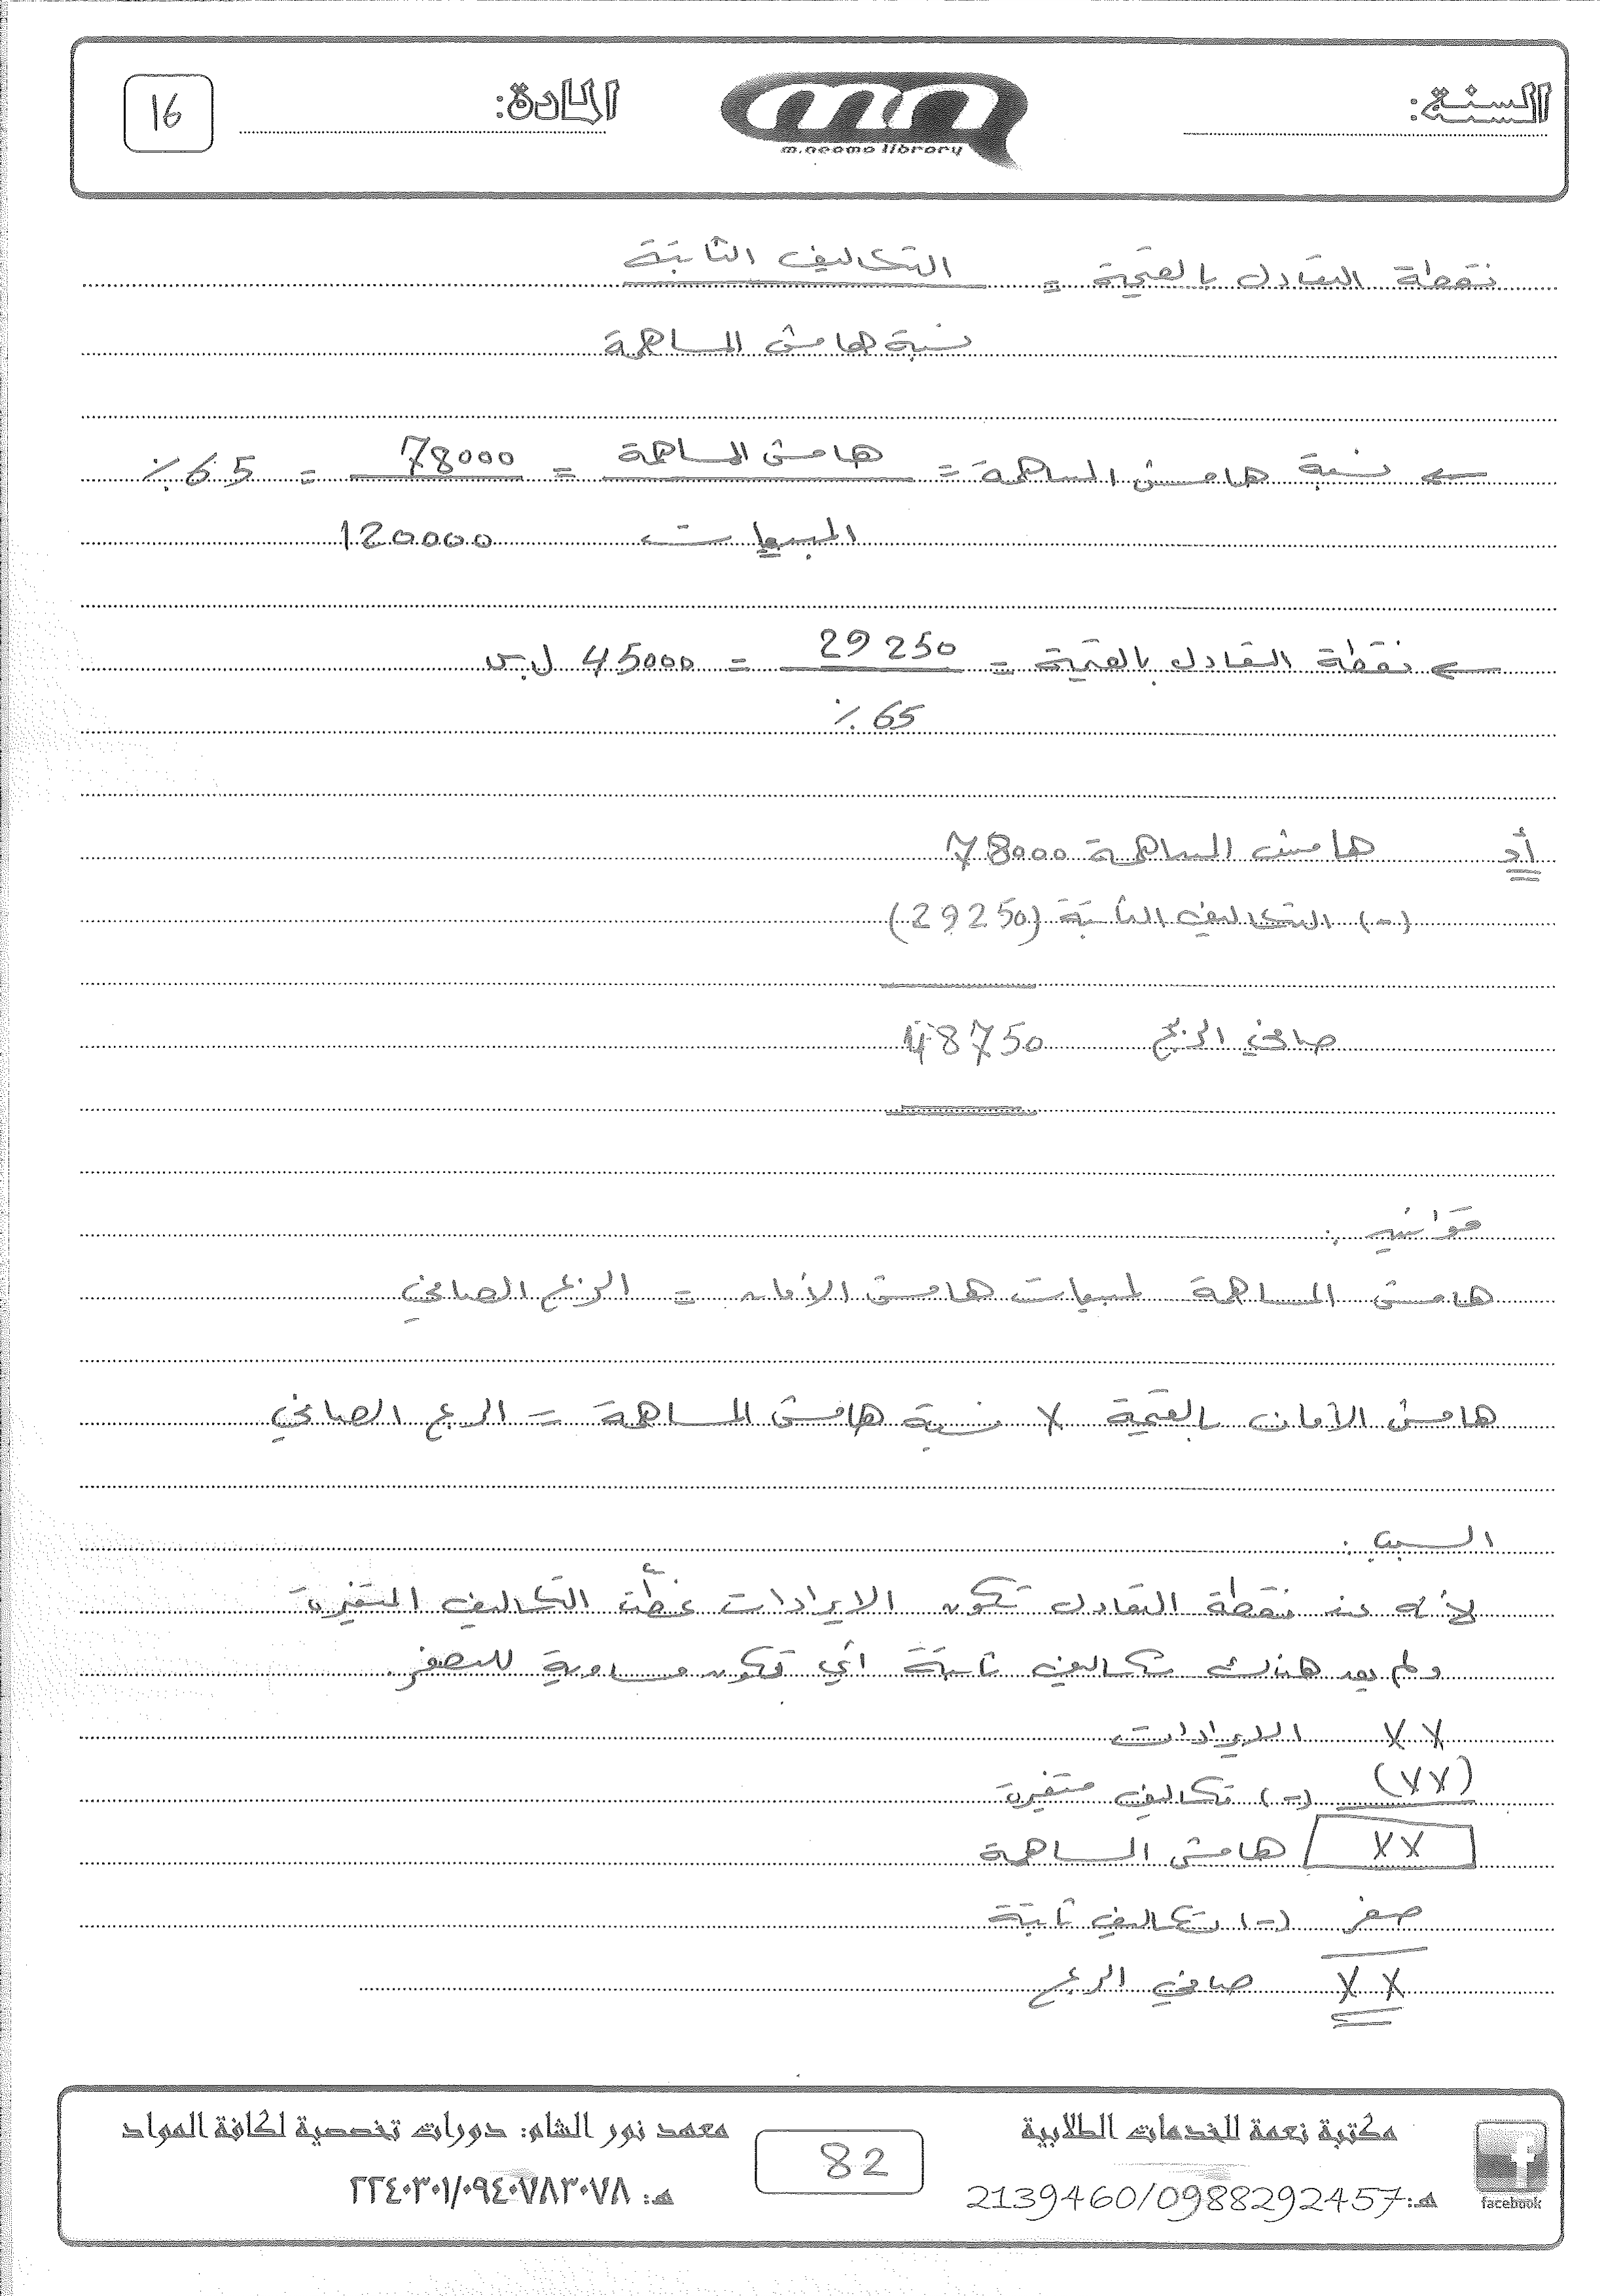 السنة: المادة: 16
m.neama library
نقطة التعادل بالقيمة = التكاليف الثابتة
نسبة هامش المساهمة
← نسبة هامش المساهمة = هامش المساهمة = 78000 = 65 ٪
المبيعات 120000
← نقطة التعادل بالقيمة = 29250 = 45000 ل.س
65 ٪
أو هامش المساهمة 78000
(-) التكاليف الثابتة (29250)
صافي الربح 48750
قوانين :
هامش المساهمة لمبيعات هامش الأمان = الربح الصافي
هامش الأمان بالقيمة × نسبة هامش المساهمة = الربح الصافي
السبب :
لأنه عند نقطة التعادل تكون الايرادات غطّت التكاليف المتغيرة
ولم يعد هناك تكاليف ثابتة أي تكون مساوية للصفر.
×× الايرادات
(××) (-) تكاليف متغيرة
×× هامش المساهمة
صفر (-) تكاليف ثابتة
×× صافي الربح
مكتبة نعمة للخدمات الطلابية
هـ: 2139460/0988292457
facebook
82
معهد نور الشام: دورات تخصصية لكافة المواد
هـ: ٢٢٤٠٣٠١/٠٩٤٠٧٨٣٠٧٨